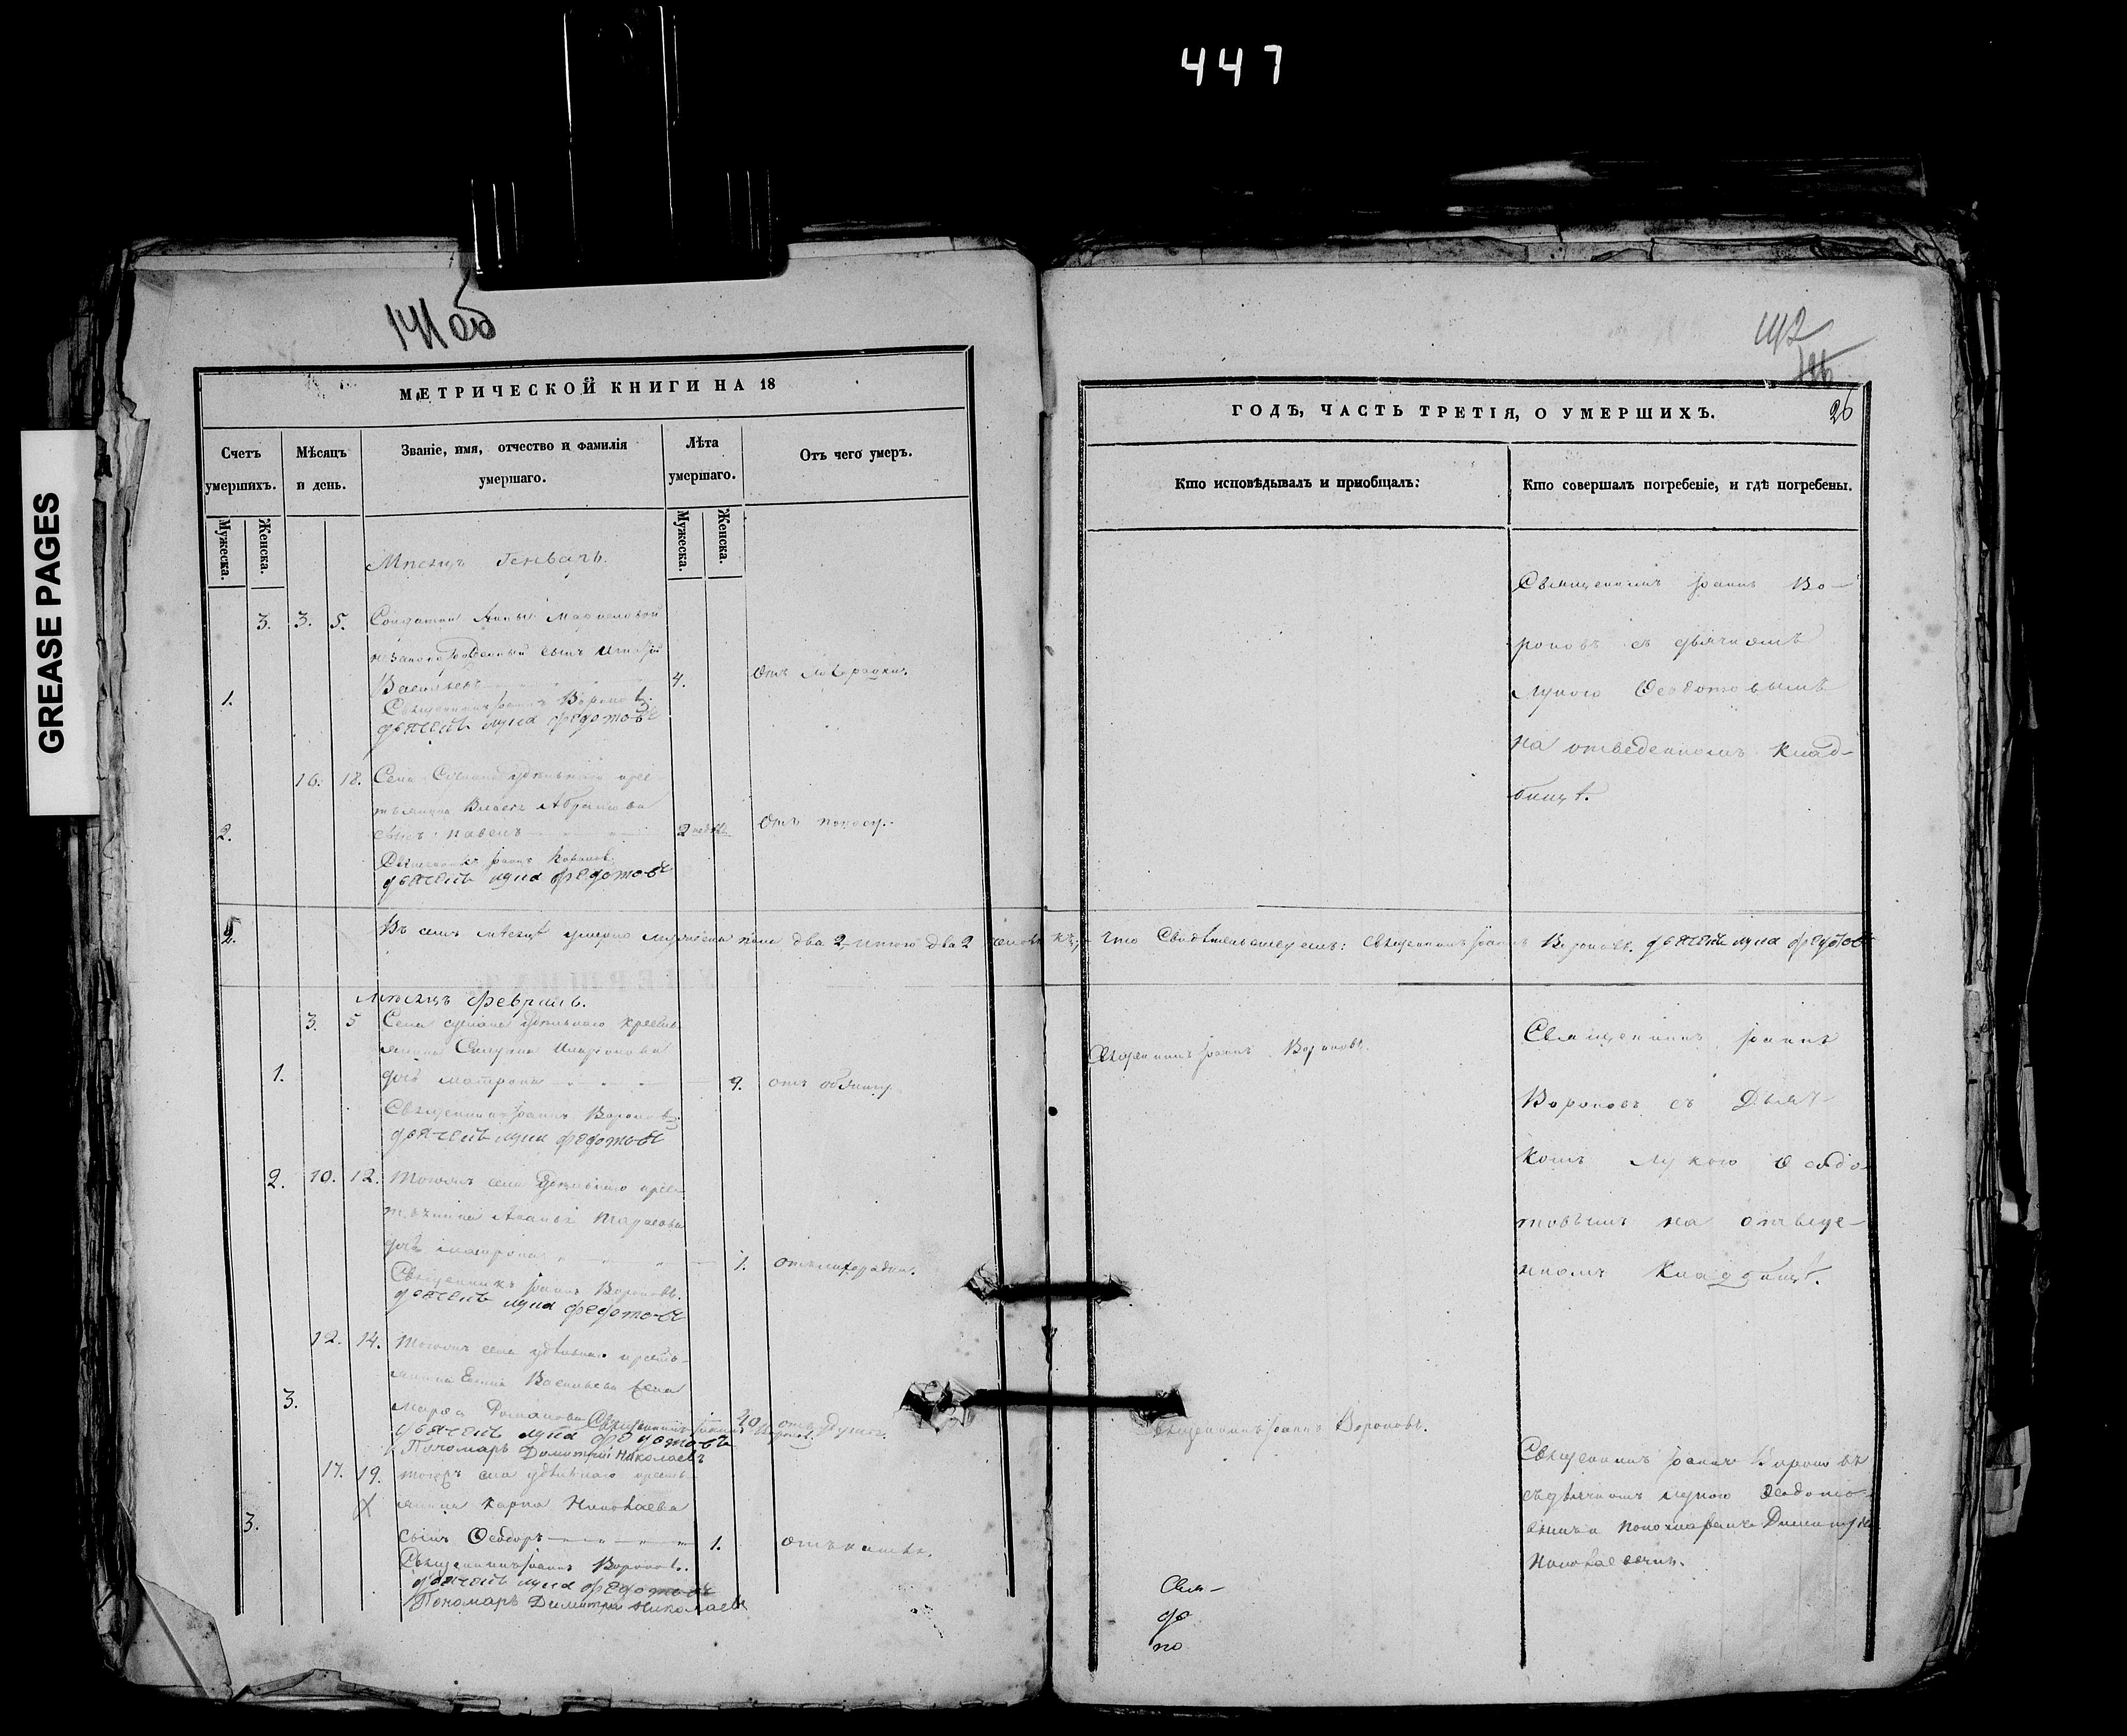 447
GREASE PAGES
141 об
142
МЕТРИЧЕСКОЙ КНИГИ НА 18
Счетъ умершихъ.
Мѣсяцъ и день.
Званіе, имя, отчество и фамилія умершаго.
Лѣта умершаго.
Отъ чего умеръ.
Мужеска.
Женска.
Мужеска.
Женска.
Месяцъ Генварь.
3. 3. 5. Солдатки Анны
незаконорожденный сынъ
1. Васильевъ 4. Отъ
Священникъ Іоаннъ Вороновъ.
дьячекъ лука федотовъ
16. 18. Села удѣльнаго крес-
тьянина Власа Абрамова
2. сынъ: павелъ 2 Отъ поносу.
Священникъ Іоаннъ Вороновъ.
дьячекъ лука федотовъ
2. Въ семъ мѣсяцѣ умерло мужеска пола два 2, итого два 2
мѣсяцъ февраль.
3. 5 Села удѣльнаго кресть-
янина
1. дочь матрона 9. отъ
Священникъ Іоаннъ Вороновъ
дьячекъ лука федотовъ
2. 10. 12. Тогожъ села удѣльнаго крес-
тьянина Тарасова
дочь матрона 1. отъ лихорадки.
Священникъ Іоаннъ Вороновъ.
дьячекъ лука федотовъ
12. 14. Тогожъ села удѣльнаго кресть-
янина Васильева жена
3. марѳа Романова 40 отъ
Священникъ Іоаннъ Вороновъ.
дьячекъ лука федотовъ
Пономарь Димитрій Николаевъ
17. 19. тогожъ села удѣльнаго кресть-
янина Карпа Николаева
3. сынъ Ѳеодоръ 1. отъ кашля.
Священникъ Іоаннъ Вороновъ.
дьячекъ лука федотовъ
Пономарь Димитрій Николаевъ
ГОДЪ, ЧАСТЬ ТРЕТІЯ, О УМЕРШИХЪ.
26
Кто исповѣдывалъ и пріобщалъ:
Кто совершалъ погребеніе, и гдѣ погребены.
Священникъ Іоаннъ Во-
роновъ съ дьячкомъ
Лукою Ѳеодотовымъ
на отведенномъ клад-
бищѣ.
что свидѣтельствуемъ: священникъ Іоаннъ Вороновъ. дьячекъ лука федотовъ
Священникъ Іоаннъ Вороновъ.
Священникъ Іоаннъ
Вороновъ съ Дьяч-
комъ Лукою Ѳеодо-
товымъ на отведе-
нномъ Кладбищѣ.
Священникъ Іоаннъ Вороновъ.
Священникъ Іоаннъ Вороновъ
съ дьячкомъ лукою Ѳеодото-
вымъ и пономаремъ Димитріем
Николаевымъ.
Свя-
дь
по